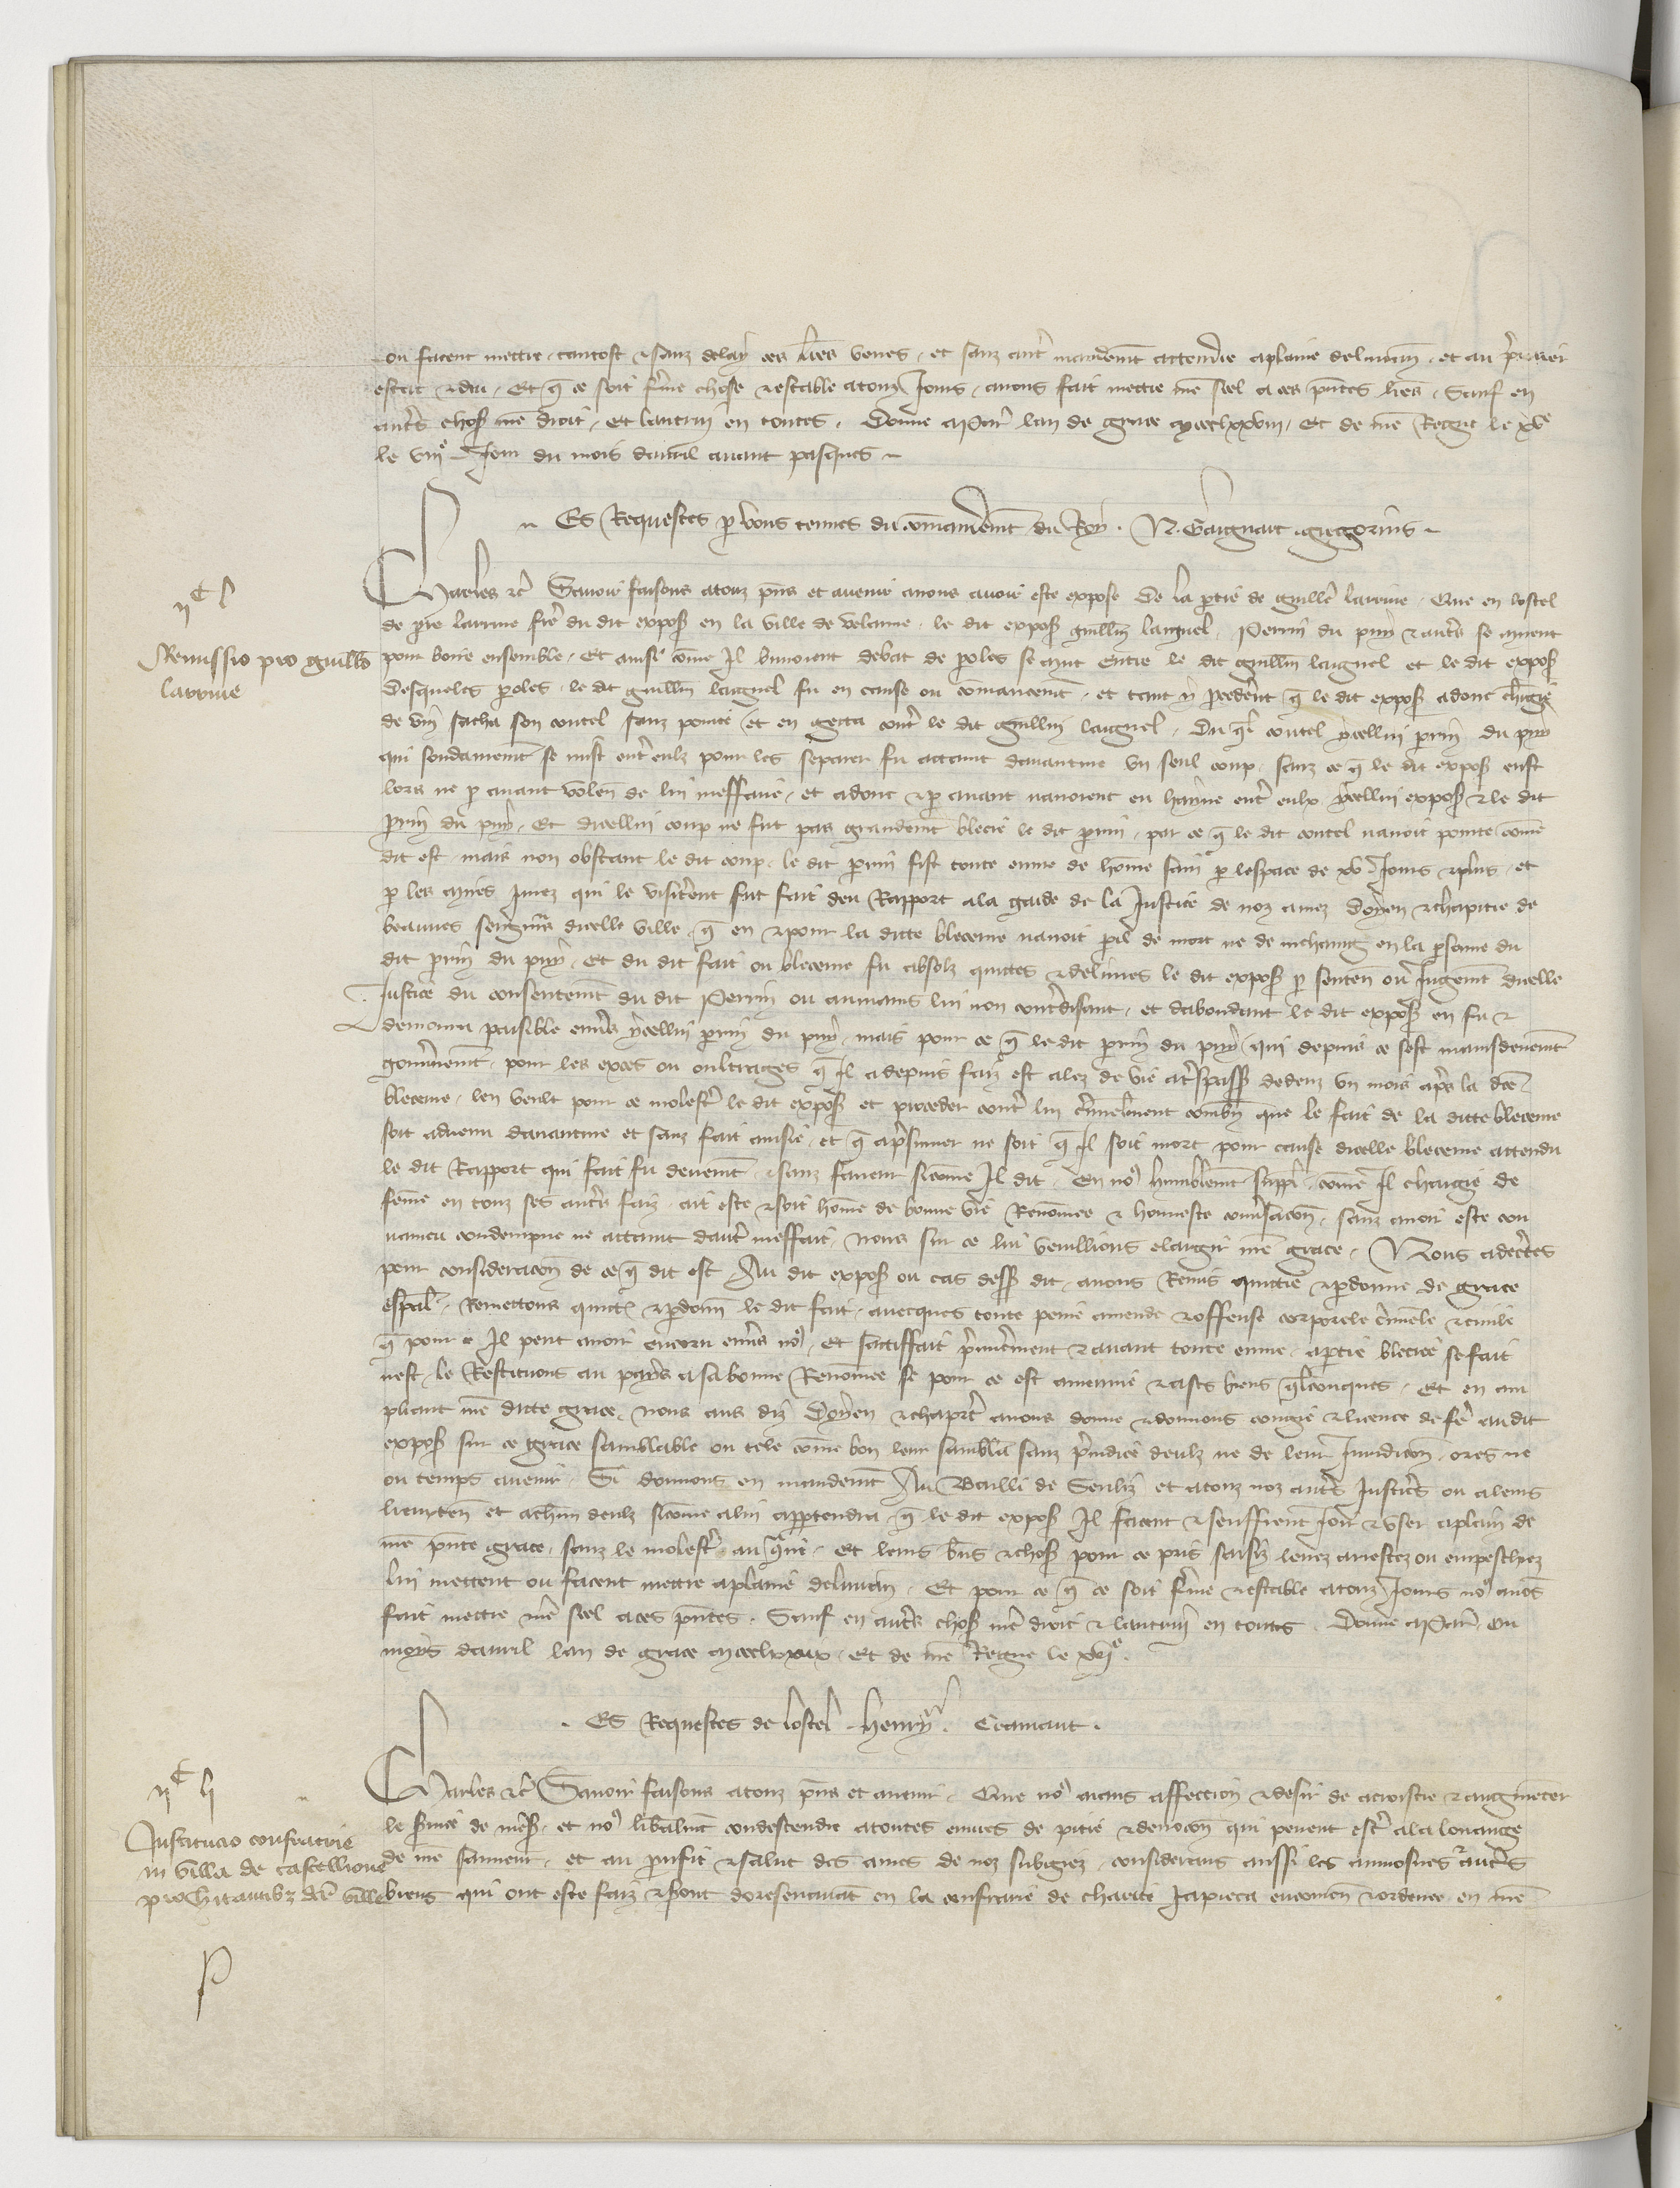 ou facent mettre tantost & sanz delay ces lres veues, et sanz autre mandemt attendre a plaine delivran, et au premier
estat & deu. Et q ce soit ferme chose & estable a touz jours, avons fait mettre nre seel a ces pntes lres. Sauf en
autres choses nre droit, et lautrui en toutes. Donne a Par lan de grace mccclxxviii, et de nre Regne le xve
le viiie Jour du mois davril avant pasques
Es Requestes p vous tenues du commandemt du Roy. N. Gaignart. gregorius
iic l
Remissio pro guillo
larrive
Charles &c Savoir faisons a touz pns et avenir a nous avoir este expose de la partie de guille larrive, Que en lostel
de pre larrive frere du dit expos en la ville de velaine, le dit expos guillin laignel, Perrin du puy & autres se mirent
pour boire ensemble, Et ainsi comme Il buvoient debat de paroles se mut entre le dit guillin laignel et le dit expos
Desqueles paroles le dit guillin laignel fu en cause ou commancemt, et tant y procederent q le dit expos adonc chargie
de vin sacha son coutel sanz pointe et en gecta contre le dit guillin laignel, Du ql coutel ycellui perrin du puy
qui soudainemt se mist entre eulz pour les separer fu attaint davanture un seul coup, sanz ce q le dit expos eust
lors ne p avant volen de lui meffaire, et adonc & p avant navoient eu hayne entre eulx ycellui expos & le dit
perrin du puy, Et dicellui coup ne fut pas grandemt blecie le dit perrin, par ce q le dit coutel navoit pointe comme
dit est, mais non obstant le dit coup, le dit perrin fist toute euvre de homme sain p lespace de xv Jours & plus, et
p les mires jurez qui le visiterent fut fait deu Rapport a la garde de la Justice de noz amez doyen & chapitre de
beauves seigneurs dicelle ville, q en & pour la ditte bleceure navoit peril de mort ne de mehaing en la personne du
dit perrin du puy, Et du dit fait ou bleceure fu absolz quittes & delivres le dit expos p senten ou Jugemt dicelle
Justice du consentemt du dit Perrin ou aumains lui non contredisant, et dabondant le dit expos en fu &
demoura paisible envers ycellui perrin du puy, mais pour ce q le dit perrin du puy qui depuis ce sest mauvaisemt
gouvernemt, pour les exces ou oultrages q Il a depuis faiz est alez de vie a trespass dedenz un mois apres la dce
bleceure, len veult pour ce molester le dit expos et proceder contre lui criminelment combien que le fait de la ditte bleceure
soit advenu davanture et sanz fait avisie, et q apresumer ne soit q Il soit mort pour cause dicelle bleceure attendu
le dit Rapport qui fait fu deuemt & sanz faveur sicomme Il dit, En nous humblemt suppli, comme Il chargie de
femme en touz ses autres faiz ait este & soit homme de bonne vie Renommee & honneste conversacion, sanz avoir este con
vaincu condempne ne attaint dautre meffait, Nous sur ce lui veuillions elargir nre grace. Nous adecertes
pour consideracion de ce q dit est, Au dit expos ou cas dess dit, avons Remis quittie & pardonne de grace
espal, Remettons quictons & pardonn le dit fait, avecques toute peine amende & offense corporele criminele & civile
q pour ce Il peut avoir encoru envers nous, Et satiffait premierement & avant toute euvre a partie blecie se fait
nest, le Restituons au pays a sa bonne Renommee se pour ce est amenrie & a ses biens qlconques. Et en am
pliant nre ditte grace, nous aus diz Doyen & chapitre avons donne & donnons congie & licence de fere au dit
expos sur ce grace semblable ou tele comme bon leur semblera sanz prejudice deulz ne de leur Juridicion ores ne
ou temps avenir. Si donnons en mandemt Au Bailli de Senliz et a touz noz autres Justiciers ou a leurs
lieuxten et a chun deulz sicomme a lui appartendra, q le dit expos Il facent & seuffrent Joir & user a plain de
nre pnte grace, sanz le molester au contraire, Et leurs biens & choses pour ce pris saisiz levez arrestez ou empeschez
lui mettent ou facent mettre a plaine delivran, Et pour ce q ce soit ferme & estable a touz Jours nous avons
fait mettre nre seel a ces pntes. Sauf en autres choses nre droit & lautrui en toutes. Donne a Par. Ou
moys davril lan de grace mccclxxix, Et de nre Regne le xvie.
Es Requestes de lostel. Henry. Cramant.
iic li
Institucio confratrie
in villa de castellione
pro habitantibus dce ville
Charles &c Savoir faisons a touz pns et avenir, Que nous aians affection & desir de acroistre & augmenter
le service de nre, et nous liberalmt condescendre a toutes euvres de pitie & devocion qui peuent estre a la louange
de nre sauveur, et au proufit & salut des ames de noz subgiez, considerans aussi les aumosnes & autres
biens qui ont este faiz & seront doresenavant en la confrarie de charite Ja pieca encommen & ordenee en nre